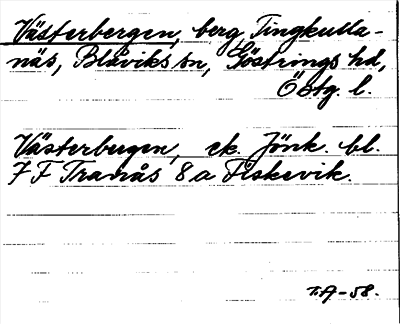 Västerbergen, berg, Tingkulla-
näs, Blåviks sn, Göstrings hd,
Östg. l.
Västerbergen, ek. Jönk. bl.
7 F Tranås 8 a Fiskevik.
T.A-58.